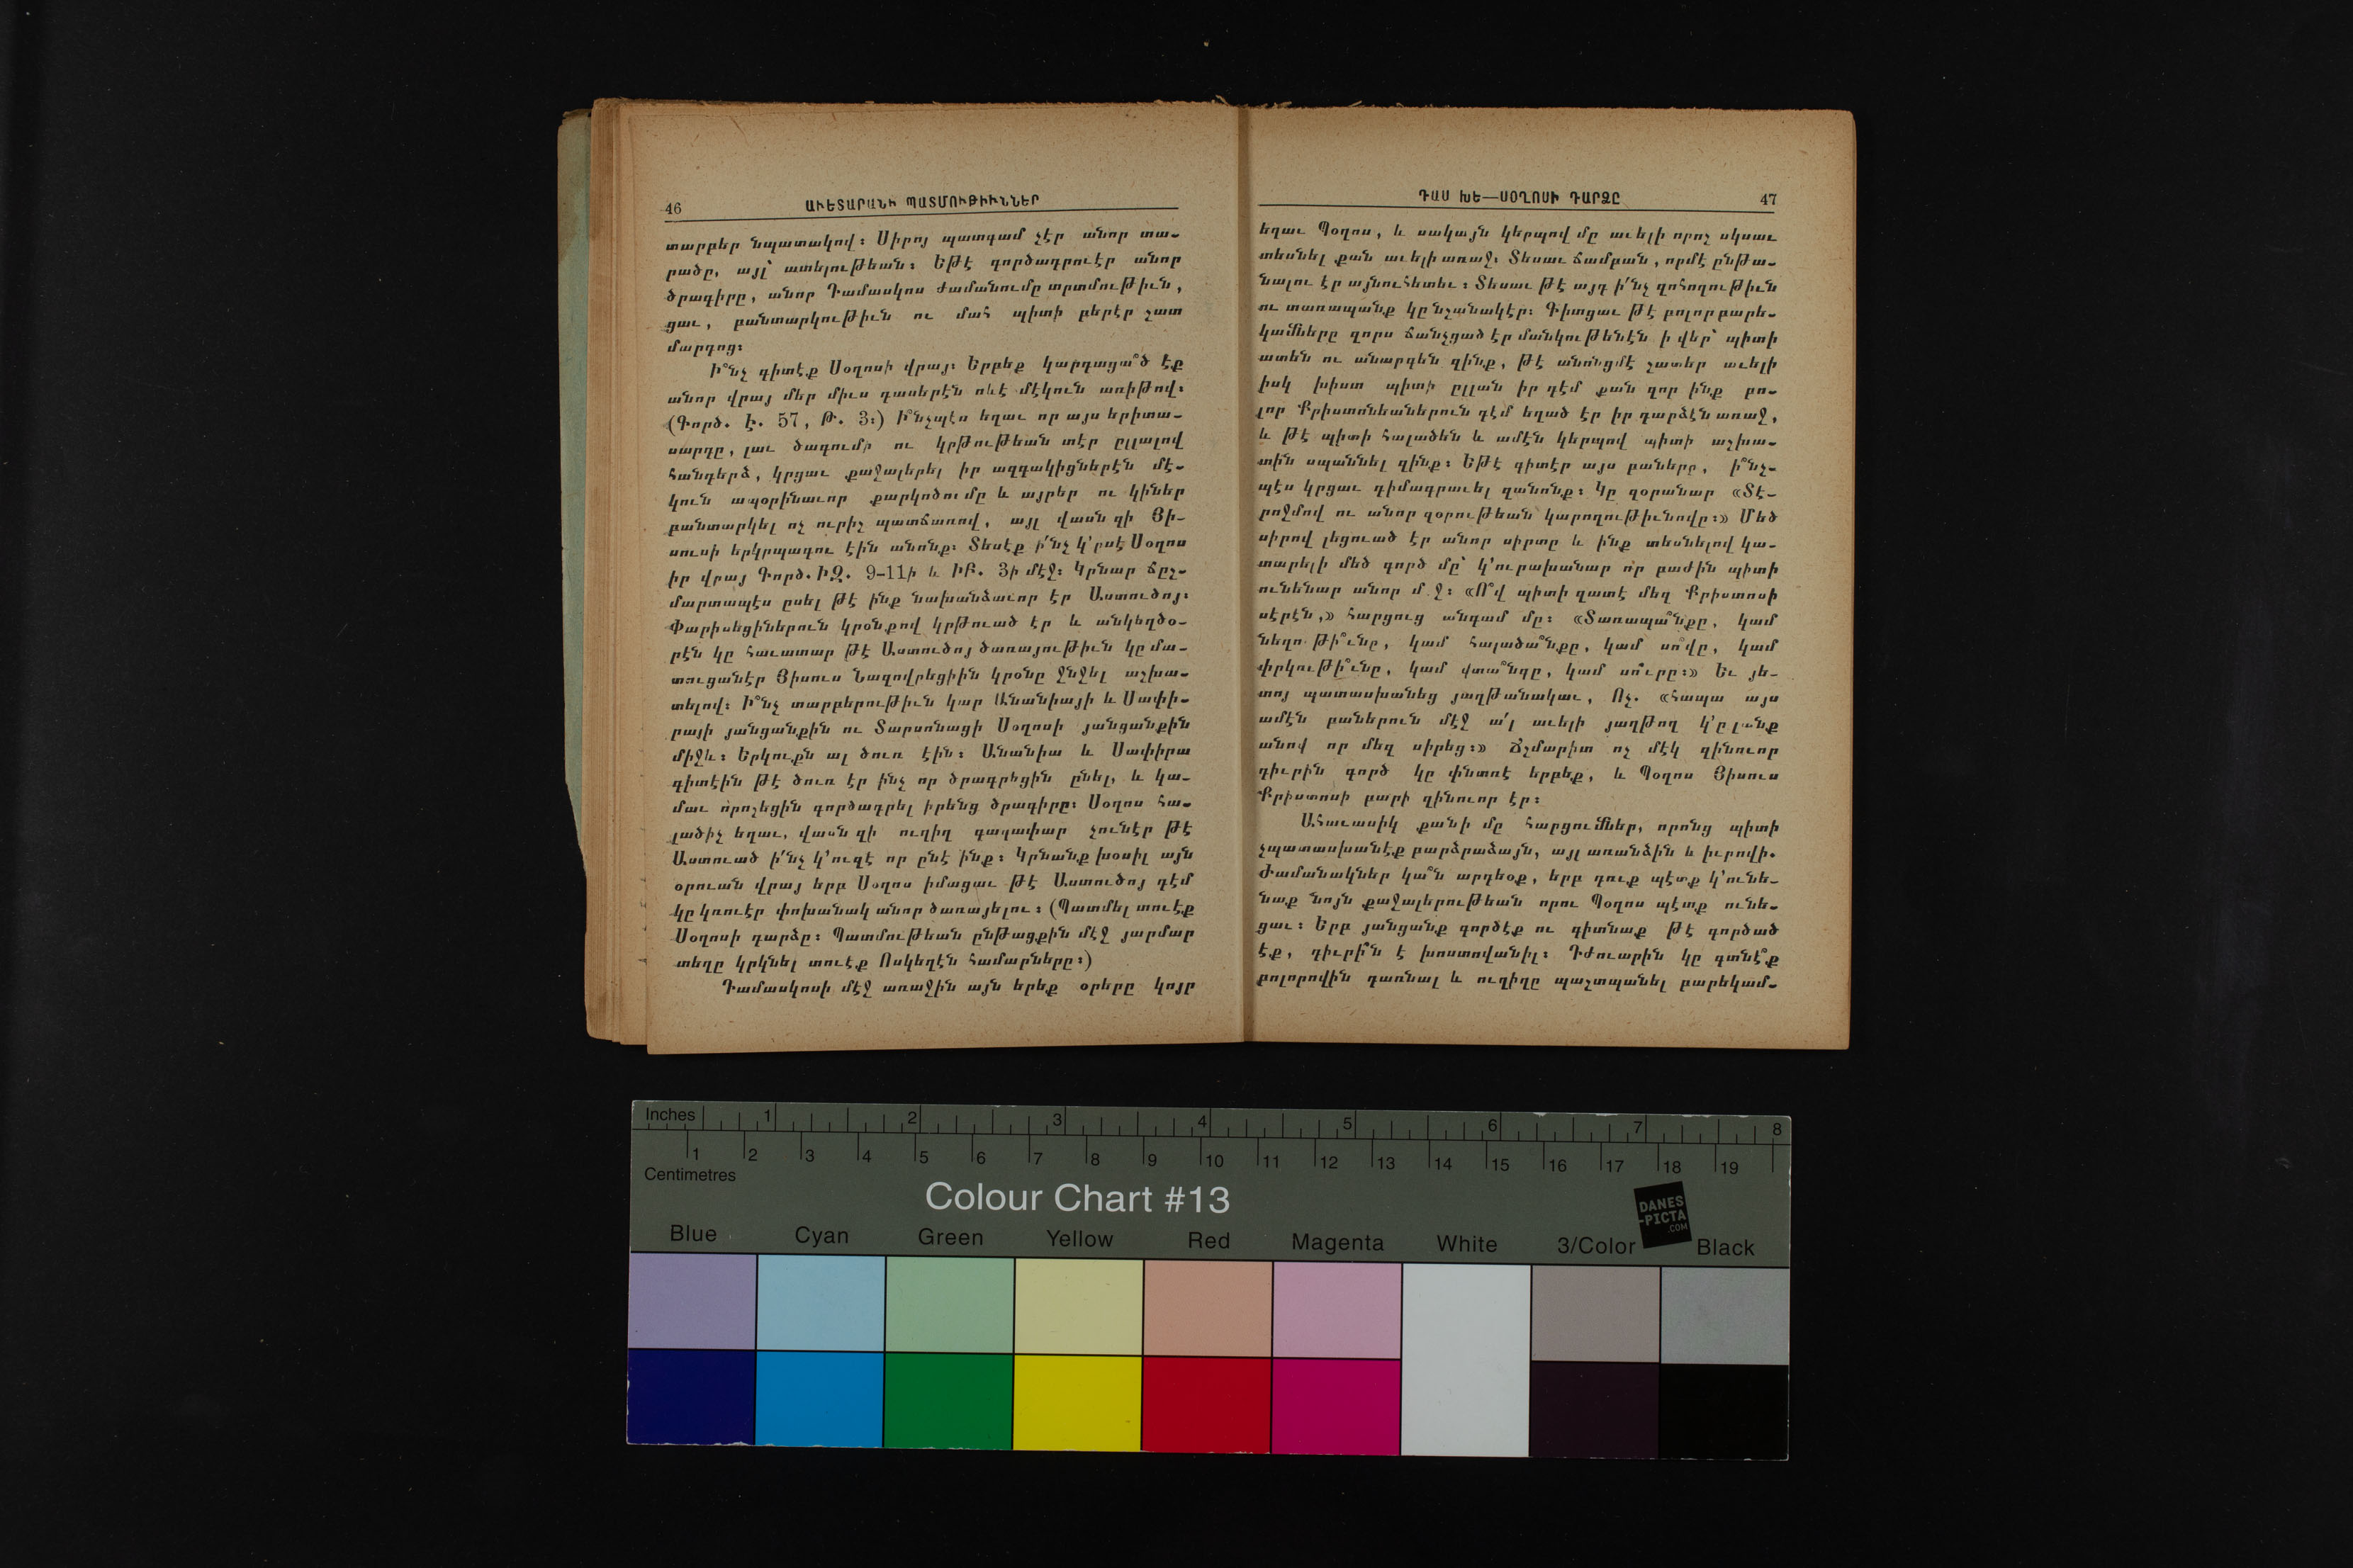 46 ԱՒԵՏԱՐԱՆԻ ՊԱՏՄՈՒԹԻՒՆՆԵՐ
տարբեր նպատակով։ Սիրոյ պատգամ չէր անոր տա-
րածը, այլ՝ ատելութեան։ Եթէ գործադրուէր անոր
ծրագիրը, անոր Դամասկոս ժամանումը տրտմութիւն,
ցաւ, բանտարկութիւն ու մահ պիտի բերէր շատ
մարդոց։
Ի՞նչ գիտէք Սօղոսի վրայ։ Երբեք կարդացա՞ծ էք
անոր վրայ մեր միւս դասերէն ոեւէ մէկուն առիթով։
(Գործ. Է. 57, Թ. 3։) Ի՞նչպէս եղաւ որ այս երիտա-
սարդը, լաւ ծագումի ու կրթութեան տէր ըլլալով
հանդերձ, կրցաւ քաջալերել իր ազգակիցներէն մէ-
կուն ապօրինաւոր քարկոծումը և այրեր ու կիներ
բանտարկել ոչ ուրիշ պատճառով, այլ վասն զի Յի-
սուսի երկրպագու էին անոնք։ Տեսէք ի՛նչ կ՚ըսէ Սօղոս
իր վրայ Գործ. ԻԶ. 9-11ի և ԻԲ. 3ի մէջ։ Կրնար ճըշ-
մարտապէս ըսել թէ ինք նախանձաւոր էր Աստուծոյ։
Փարիսեցիներուն կրօնքով կրթուած էր և անկեղծօ-
րէն կը հաւատար թէ Աստուծոյ ծառայութիւն կը մա-
տուցանէր Յիսուս Նազովրեցիին կրօնը ջնջել աշխա-
տելով։ Ի՞նչ տարբերութիւն կար Անանիայի և Սափի-
րայի յանցանքին ու Տարսոնացի Սօղոսի յանցանքին
միջև։ Երկուքն ալ ծուռ էին։ Անանիա և Սափիրա
գիտէին թէ ծուռ էր ինչ որ ծրագրեցին ընել, և կա-
մաւ որոշեցին գործադրել իրենց ծրագիրը։ Սօղոս հա-
լածիչ եղաւ, վասն զի ուղիղ գաղափար չունէր թէ
Աստուած ի՛նչ կ՚ուզէ որ ընէ ինք։ Կրնանք խօսիլ այն
օրուան վրայ երբ Սօղոս իմացաւ թէ Աստուծոյ դէմ
կը կռուէր փոխանակ անոր ծառայելու։ (Պատմել տուէք
Սօղոսի դարձը։ Պատմութեան ընթացքին մէջ յարմար
տեղը կրկնել տուէք Ոսկեղէն համարները։)
Դամասկոսի մէջ առաջին այն երեք օրերը կոյր
ԴԱՍ ԽԵ—ՍՕՂՈՍԻ ԴԱՐՁԸ 47
եղաւ Պօղոս, և սակայն կերպով մը աւելի որոշ սկսաւ
տեսնել քան աւելի առաջ։ Տեսաւ ճամբան, որմէ ընթա-
նալու էր այնուհետեւ։ Տեսաւ թէ այդ ի՛նչ զոհողութիւն
ու տառապանք կը նշանակէր։ Գիտցաւ թէ բոլոր բարե-
կամները զորս ճանչցած էր մանկութենէն ի վեր՝ պիտի
ատեն ու անարգեն զինք, թէ անոնցմէ շատեր աւելի
իսկ խիստ պիտի ըլլան իր դէմ քան զոր ինք բո-
լոր Քրիստոնեաներուն դէմ եղած էր իր դարձէն առաջ,
և թէ պիտի հալածեն և ամէն կերպով պիտի աշխա-
տին սպաննել զինք։ Եթէ գիտէր այս բաները, ի՞նչ-
պէս կրցաւ դիմագրաւել զանոնք։ Կը զօրանար «Տէ-
րոջմով ու անոր զօրութեան կարողութիւնովը։» Մեծ
սիրով լեցուած էր անոր սիրտը և ինք տեսնելով կա-
տարելի մեծ գործ մը՝ կ՚ուրախանար որ բաժին պիտի
ունենար անոր մ ջ։ «Ո՞վ պիտի զատէ մեզ Քրիստոսի
սէրէն,» հարցուց անգամ մը։ «Տառապա՞նքը, կամ
նեղո թի՞ւնը, կամ հալածա՞նքը, կամ սո՞վը, կամ
մերկութի՞ւնը, կամ վտա՞նգը, կամ սո՞ւրը։» Եւ յե-
տոյ պատասխանեց յաղթանակաւ, Ոչ. «հապա այս
ամէն բաներուն մէջ ա՛լ աւելի յաղթող կ՚ըլանք
անով որ մեզ սիրեց։» Ճշմարիտ ոչ մէկ զինուոր
դիւրին գործ կը փնտռէ երբեք, և Պօղոս Յիսուս
Քրիստոսի բարի զինուոր էր։
Ահաւասիկ քանի մը հարցումներ, որոնց պիտի
չպատասխանէք բարձրաձայն, այլ առանձին և իւրովի.
Ժամանակներ կա՞ն արդեօք, երբ դուք պէտք կ՚ունե-
նաք նոյն քաջալերութեան որու Պօղոս պէտք ունե-
ցաւ։ Երբ յանցանք գործէք ու գիտնաք թէ գործած
էք, դիւրի՞ն է խոստովանիլ։ Դժուարին կը գտնէ՞ք
բոլորովին դառնալ և ուղիղը պաշտպանել բարեկամ-
Inches 1 2 3 4 5 6 7 8
1 2 3 4 5 6 7 8 9 10 11 12 13 14 15 16 17 18 19
Centimetres
Colour Chart #13
DANES
-PICTA
.COM
Blue Cyan Green Yellow Red Magenta White 3/Color Black